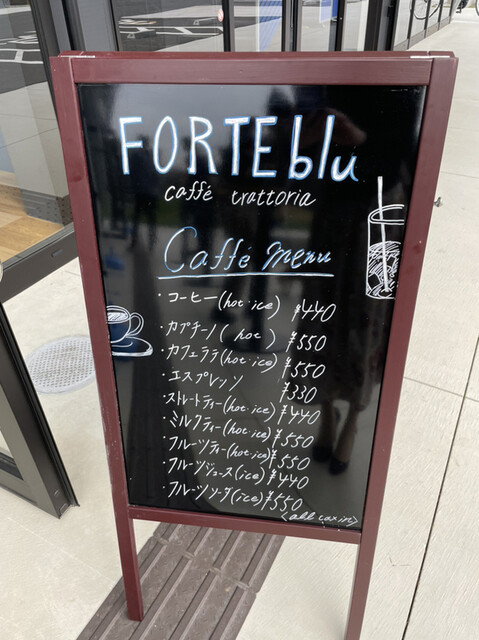 FORTE blu
caffé trattoria
Caffé menu
・コーヒー(hot・ice) ¥440
・カプチーノ(hot) ¥550
・カフェラテ(hot・ice) ¥550
・エスプレッソ ¥330
・ストレートティー(hot・ice) ¥440
・ミルクティー(hot・ice) ¥550
・フルーツティー(hot・ice) ¥550
・フルーツジュース(ice) ¥440
・フルーツソーダ(ice) ¥550
<all tax in>